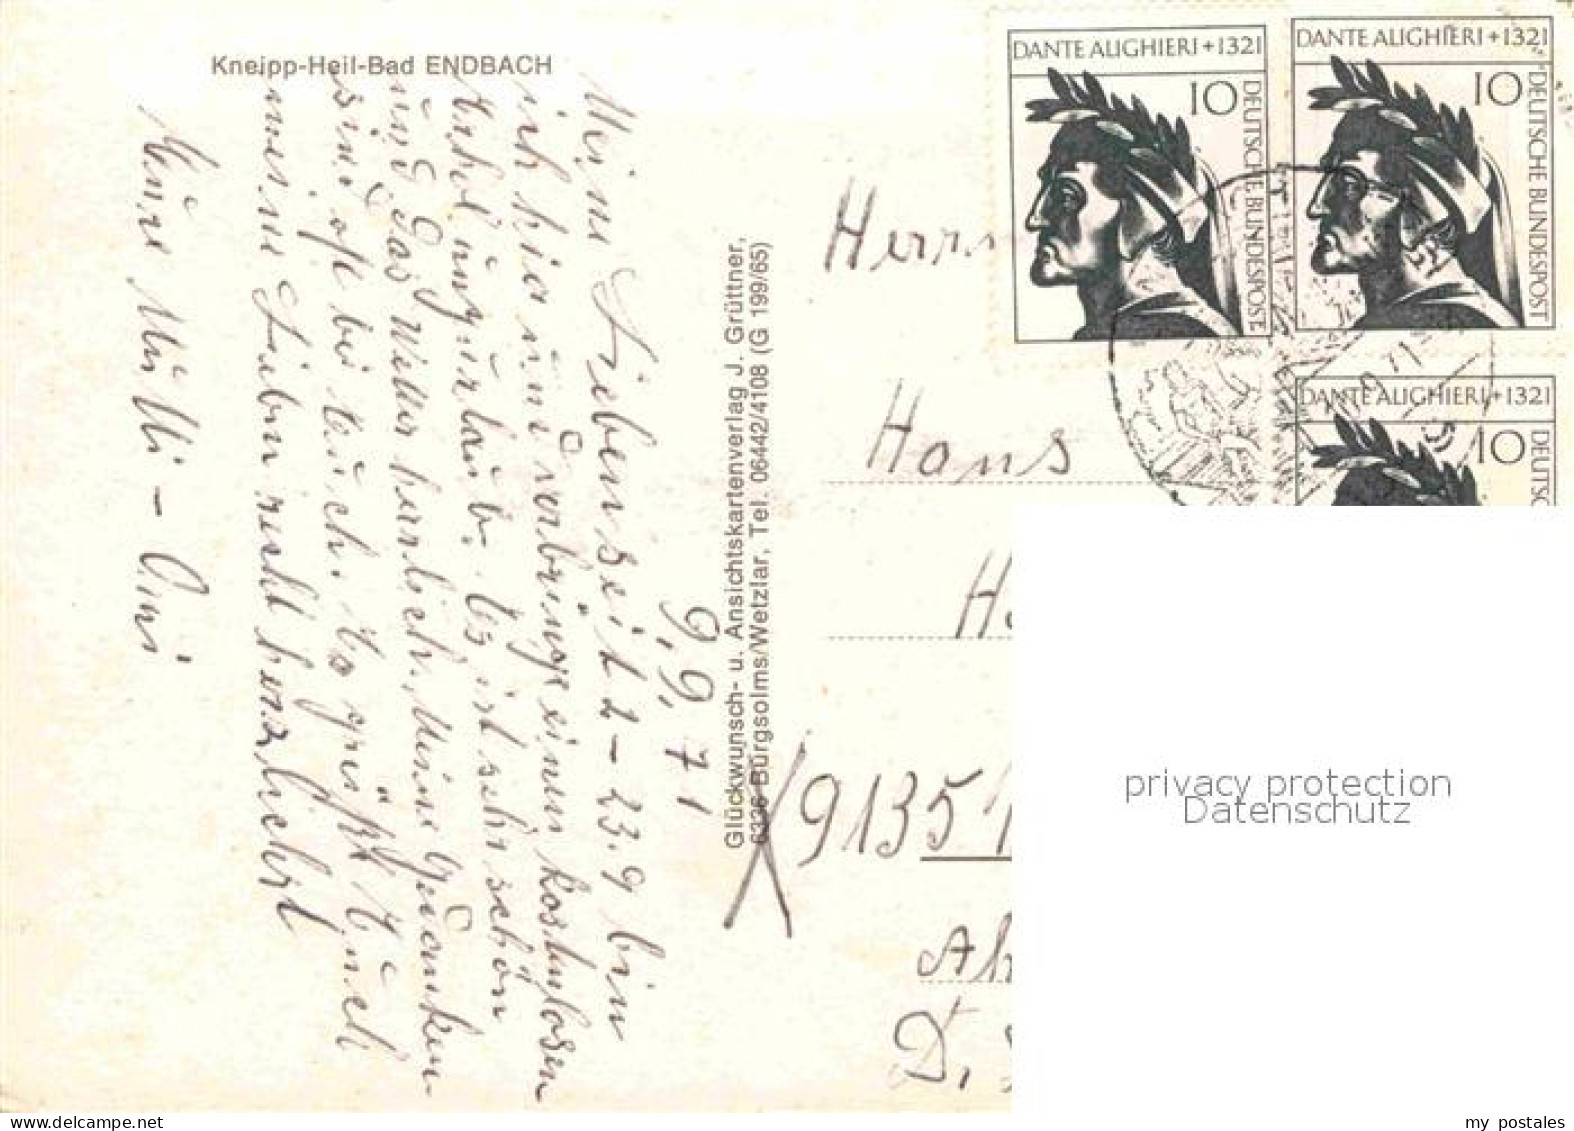 Kneipp-Heil-Bad ENDBACH
9.9.71
Meine Lieben seit 2-23.9 bin
ich hier und verbringe einen kostenlosen
Erholungsurlaub. Es ist sehr schön
und das Wetter herrlich. Meine Gedanken
sind oft bei Euch. Es grüßt Euch
meine Lieben recht herzlichst
Eure Mutti - Omi
Glückwunsch- u. Ansichtskartenverlag J. Grüttner,
6336 Burgsolms/Wetzlar, Tel. 06442/4108 (G 199/65)
DANTE ALIGHIERI +1321
10
DEUTSCHE BUNDESPOST
DANTE ALIGHIERI +1321
10
DEUTSCHE BUNDESPOST
DANTE ALIGHIERI +1321
10
DEUTSC
Herrn
Hans
H
9135
D.
privacy protection
Datenschutz
my postales